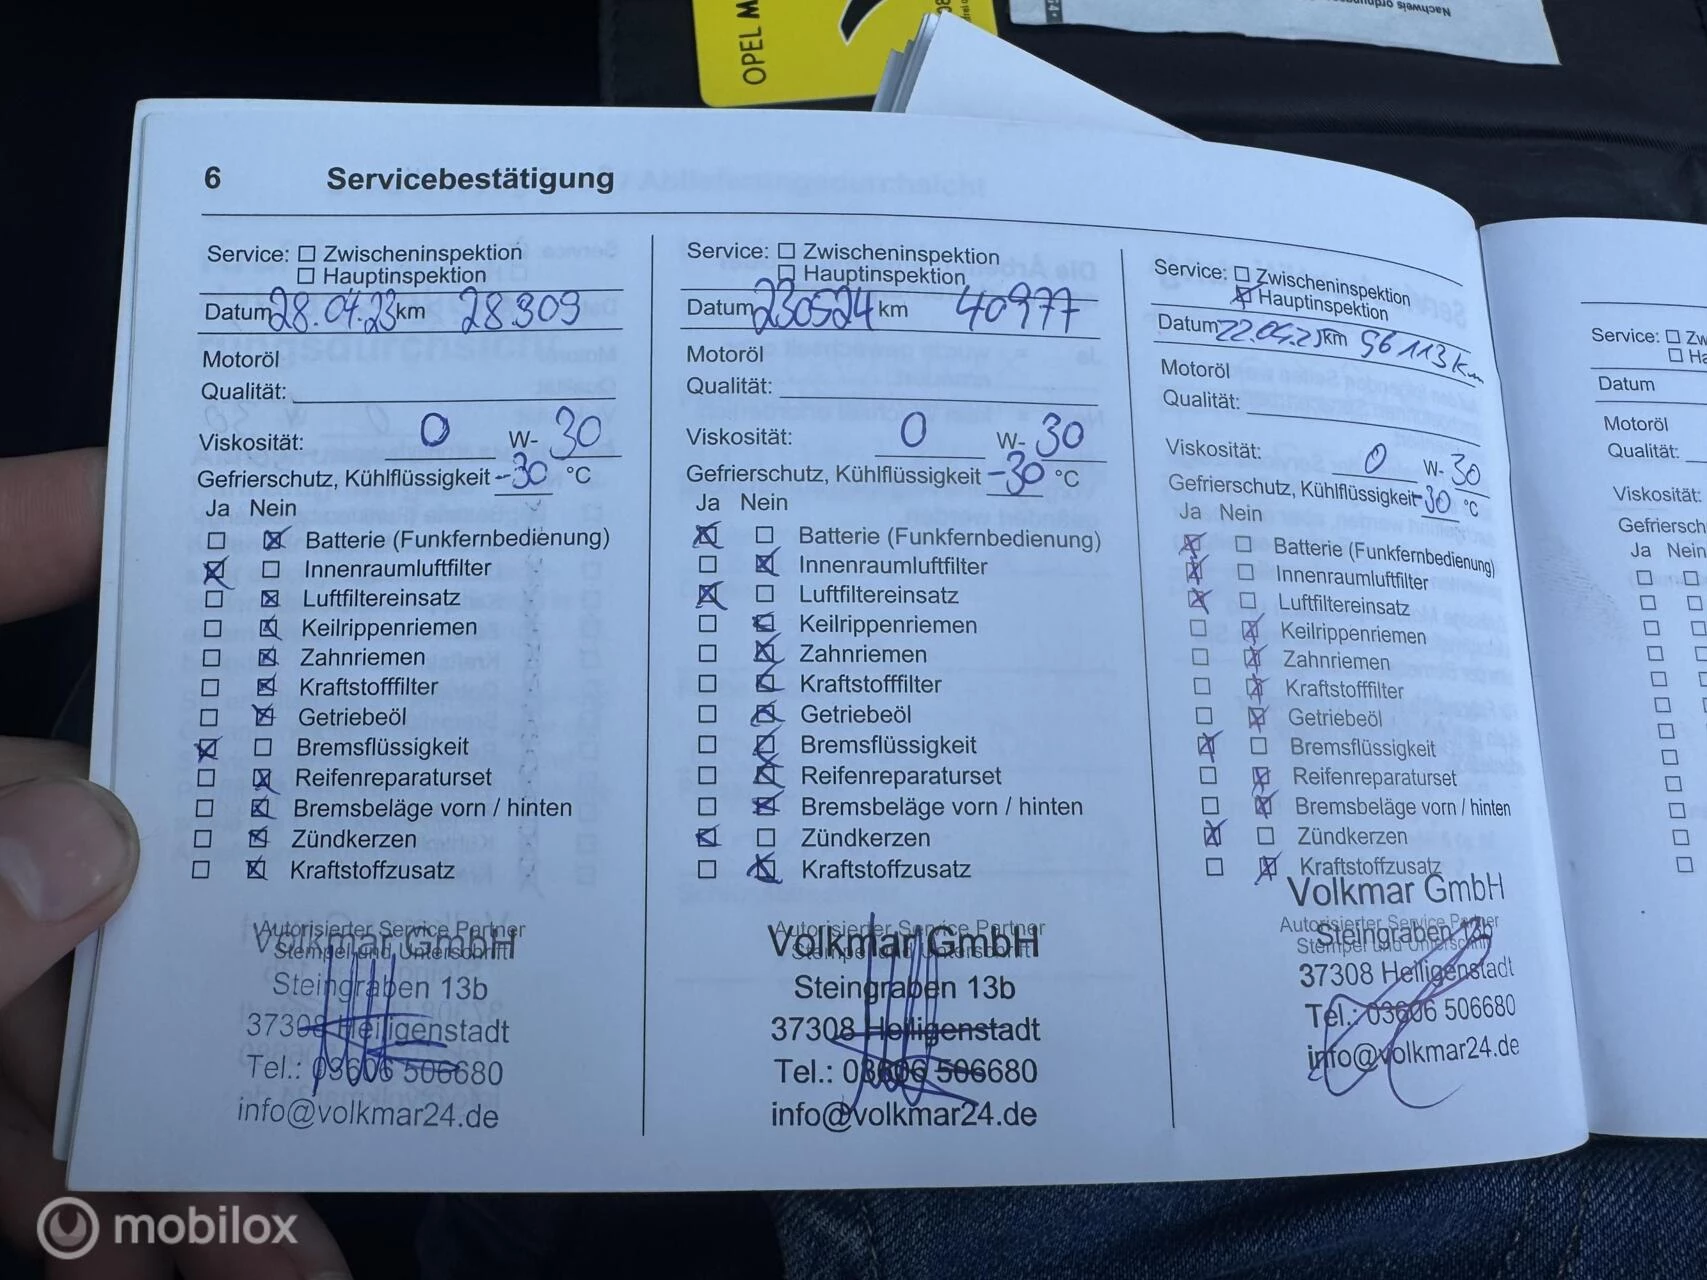 OPEL M
Nachweis
6 Servicebestätigung
Service: Zwischeninspektion
Hauptinspektion
Datum 28.04.23 km 28.309
Motoröl
Qualität:
Viskosität: 0 W- 30
Gefrierschutz, Kühlflüssigkeit -30 °C
Ja Nein
Batterie (Funkfernbedienung)
Innenraumluftfilter
Luftfiltereinsatz
Keilrippenriemen
Zahnriemen
Kraftstofffilter
Getriebeöl
Bremsflüssigkeit
Reifenreparaturset
Bremsbeläge vorn / hinten
Zündkerzen
Kraftstoffzusatz
Autorisierter Service Partner
Volkmar GmbH
Stempel und Unterschrift
Steingraben 13b
37308 Heiligenstadt
Tel.: 03606 506680
info@volkmar24.de
Service: Zwischeninspektion
Hauptinspektion
Datum 230524 km 40977
Motoröl
Qualität:
Viskosität: 0 W- 30
Gefrierschutz, Kühlflüssigkeit -30 °C
Ja Nein
Batterie (Funkfernbedienung)
Innenraumluftfilter
Luftfiltereinsatz
Keilrippenriemen
Zahnriemen
Kraftstofffilter
Getriebeöl
Bremsflüssigkeit
Reifenreparaturset
Bremsbeläge vorn / hinten
Zündkerzen
Kraftstoffzusatz
Autorisierter Service Partner
Volkmar GmbH
Stempel und Unterschrift
Steingraben 13b
37308 Heiligenstadt
Tel.: 03606 506680
info@volkmar24.de
Service: Zwischeninspektion
Hauptinspektion
Datum km 113 Km
Motoröl
Qualität:
Viskosität: 0 W- 30
Gefrierschutz, Kühlflüssigkeit -30 °C
Ja Nein
Batterie (Funkfernbedienung)
Innenraumluftfilter
Luftfiltereinsatz
Keilrippenriemen
Zahnriemen
Kraftstofffilter
Getriebeöl
Bremsflüssigkeit
Reifenreparaturset
Bremsbeläge vorn / hinten
Zündkerzen
Kraftstoffzusatz
Volkmar GmbH
Autorisierter Service Partner
Steingraben 13b
Stempel und Unterschrift
37308 Heiligenstadt
Tel.: 03606 506680
info@volkmar24.de
Service: Zw
Ha
Datum
Motoröl
Qualität:
Viskosität:
Gefriersch
Ja Nein
mobilox